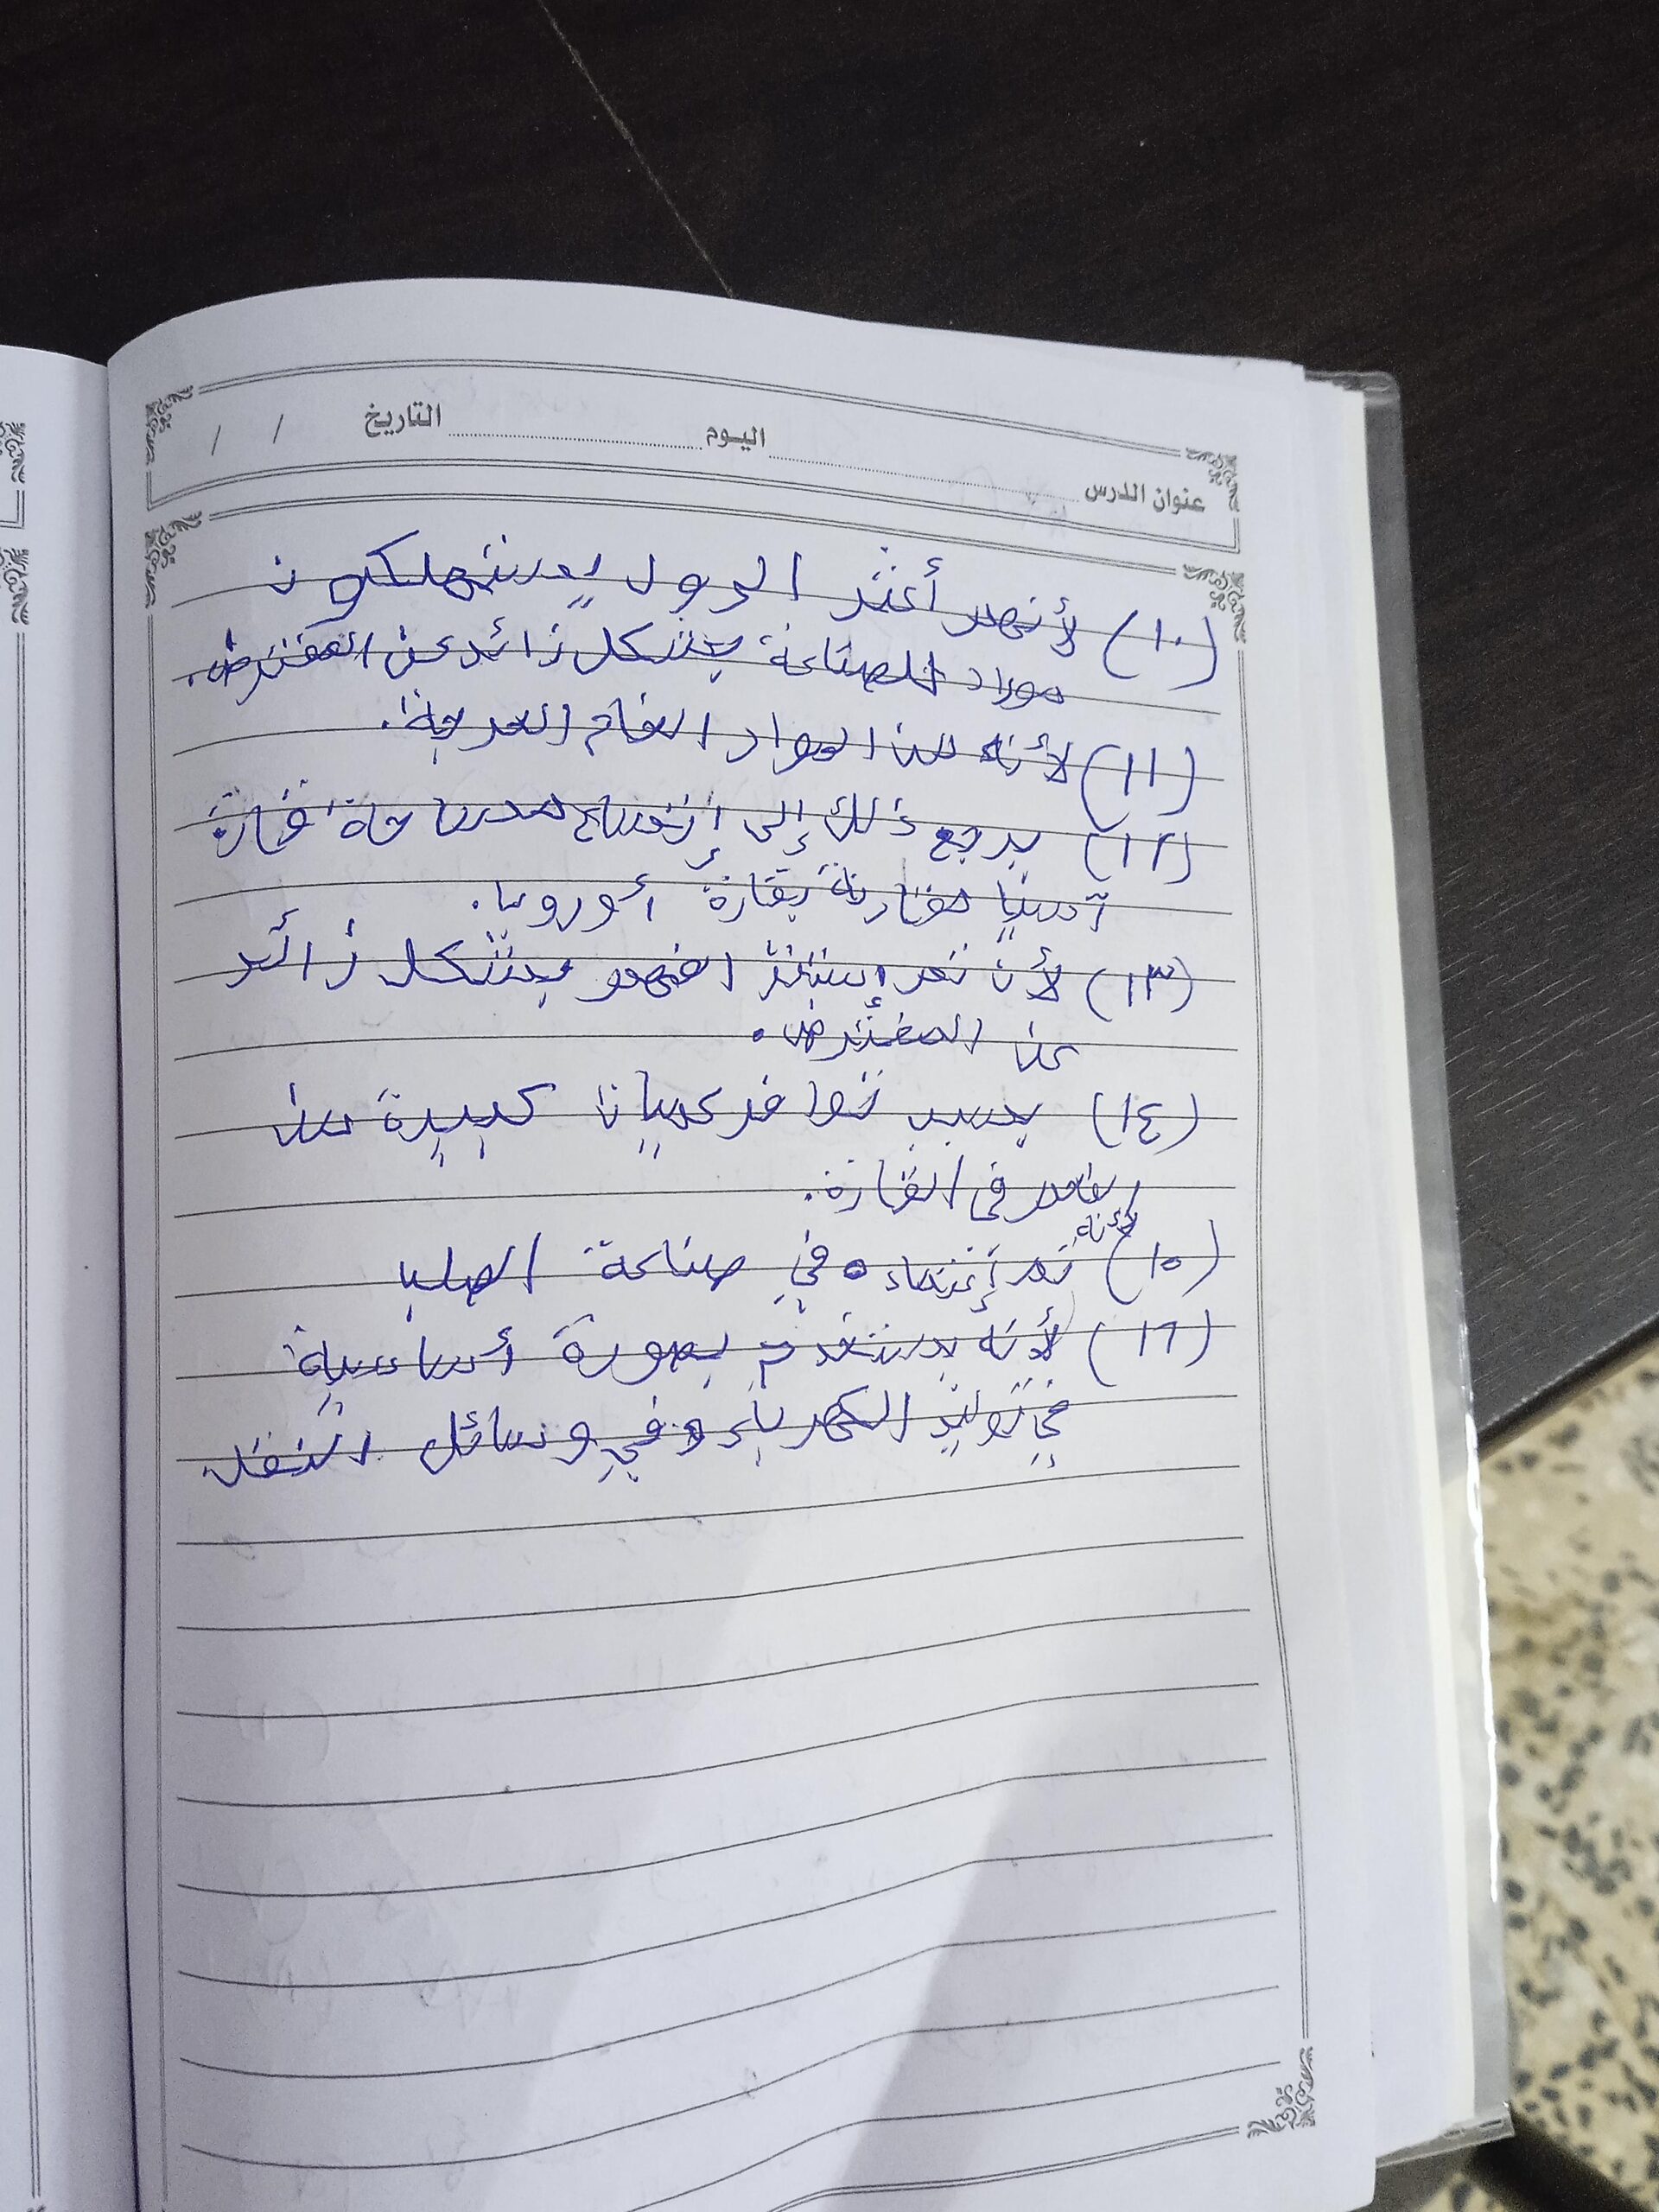 عنوان الدرس اليوم التاريخ / /
(١٠) لأنهم أكثر الدول يستهلكون
مواد الصناعة بشكل زائد عن المفترض.
(١١) لأنه من المواد الخام الحرجة.
(١٢) يرجع ذلك إلى إتساع مساحة قارة
آسيا مقارنة بقارة أوروبا.
(١٣) لأن تم إستنزافهم بشكل زائد
عن المفترض.
(١٤) بسبب توافر كميات كبيرة من
في القارة.
(١٥) لأنه تم في صناعة الصلب
(١٦) لأنه يستخدم بصورة أساسية
في توليد الكهرباء وفي وسائل النقل